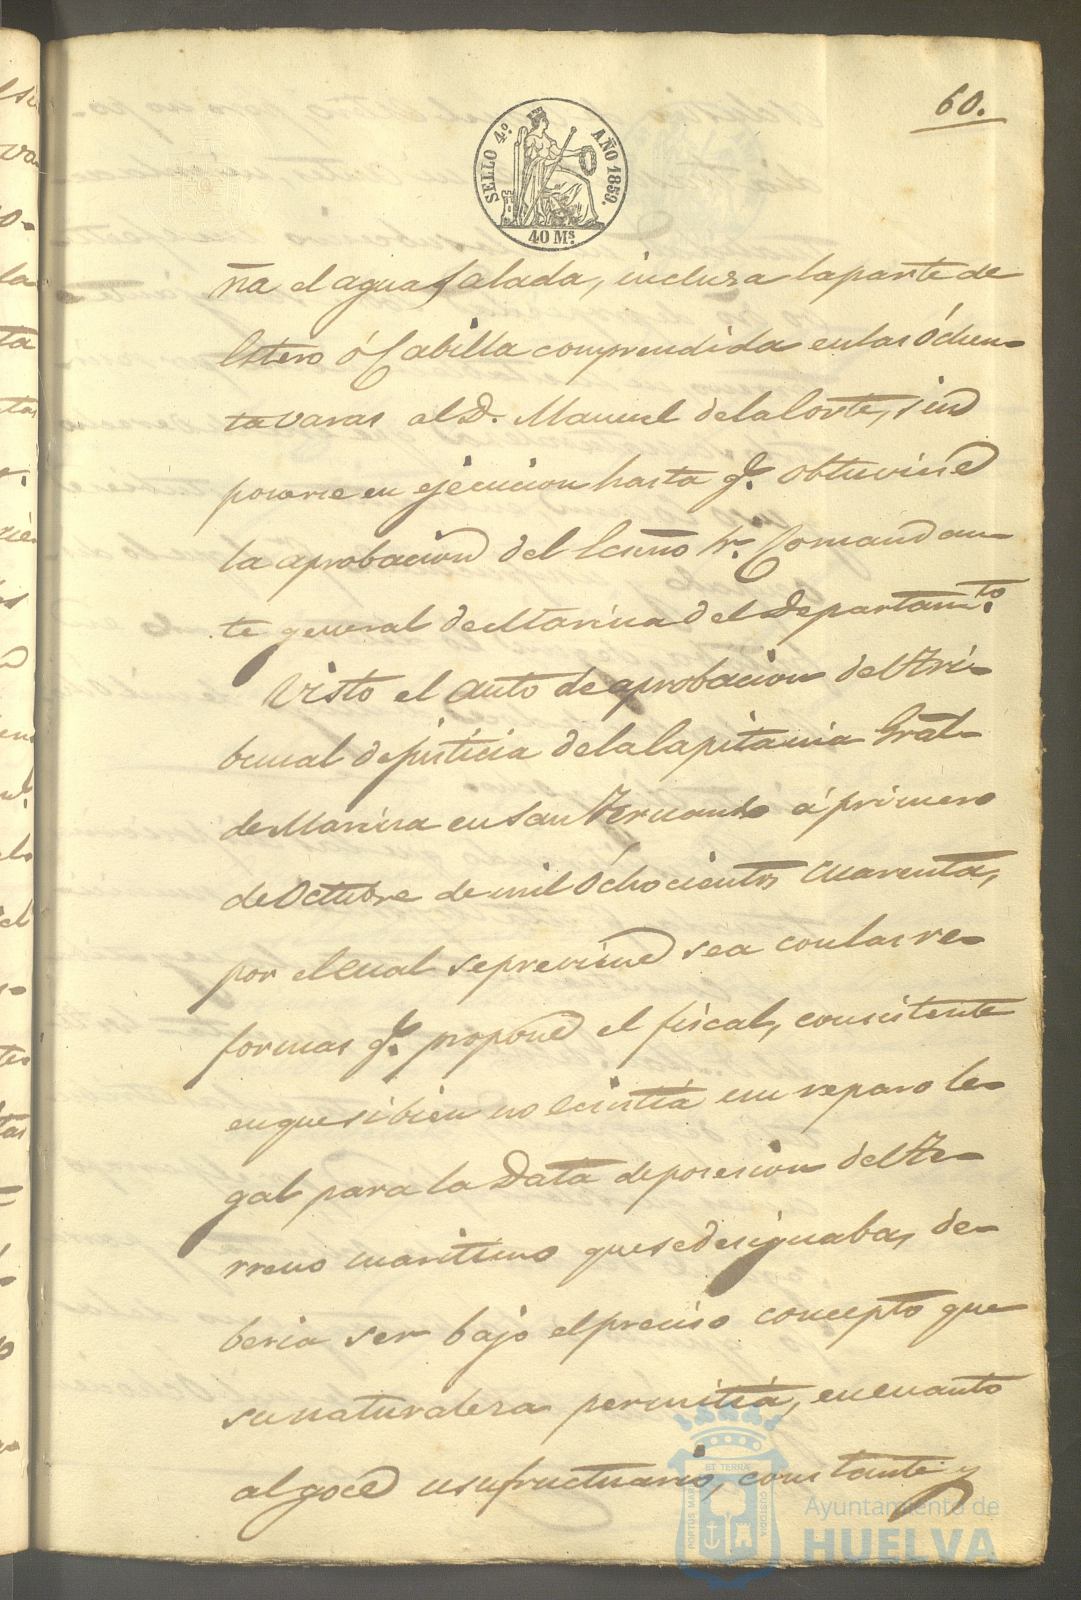 60.
SELLO 4.º AÑO 1859.
40 Ms.
ña el agua salada, inclusa la parte de
Estero ó Cabilla comprendida en las óchen-
ta varas al D. Manuel de la Corte, sin
ponerse en ejecucion hasta q.e obtuviese
la aprobacion del Escmo Sr. Comandan-
te general de Marina del Departam.to
Visto el auto de aprobacion del Tri-
bunal de justicia de la Capitania Gral
de Marina en San Fernando á primero
de Octubre de mil óchocientos cuarenta,
por el cual se previene sea con las re-
formas q.e propone el fiscal, consistente
en que si bien no ecsistia un reparo le-
gal para la Data de posesion del Te-
rreno maritimo que se designaba, de-
beria ser bajo el preciso concepto que
su naturalesa permitia, en cuanto
al goce usufructuario, constante y
PORTUS MARIS ET TERRAE CUSTODIA
Ayuntamiento de
HUELVA